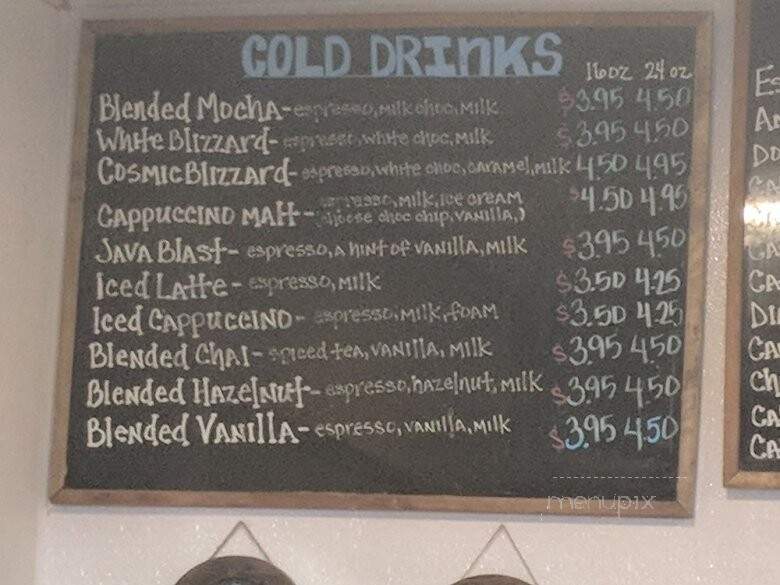 COLD DRINKS
16oz 24 oz
Blended Mocha- espresso, milk choc, milk $3.95 4.50
White Blizzard- espresso, white choc, milk $3.95 4.50
Cosmic Blizzard- espresso, white choc, caramel, milk 4.50 4.95
Cappuccino Malt- espresso, milk, ice cream $4.50 4.95
(choose choc chip, vanilla,)
Java Blast- espresso, a hint of vanilla, milk $3.95 4.50
Iced Latte- espresso, milk $3.50 4.25
Iced Cappuccino- espresso, milk, foam $3.50 4.25
Blended Chai- spiced tea, vanilla, milk $3.95 4.50
Blended Hazelnut- espresso, hazelnut, milk $3.95 4.50
Blended Vanilla- espresso, vanilla, milk $3.95 4.50
menupix